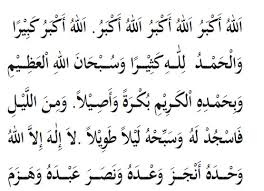 اَللهُ أَكْبَرُ اَللهُ أَكْبَرُ اَللهُ أَكْبَرُ. اَللهُ أَكْبَرُ كَبِيْرًا
وَالْحَمْدُ لِلّٰهِ كَثِيْرًا وَسُبْحَانَ اللهِ الْعَظِيْمِ
وَبِحَمْدِهِ الْكَرِيْمِ بُكْرَةً وَأَصِيْلاً. وَمِنَ اللَّيْلِ
فَاسْجُدْ لَهُ وَسَبِّحْهُ لَيْلاً طَوِيْلاً .لَا إِلٰهَ إِلاَّ اللهُ
وَحْدَهُ أَنْجَزَ وَعْدَهُ وَنَصَرَ عَبْدَهُ وَهَزَمَ